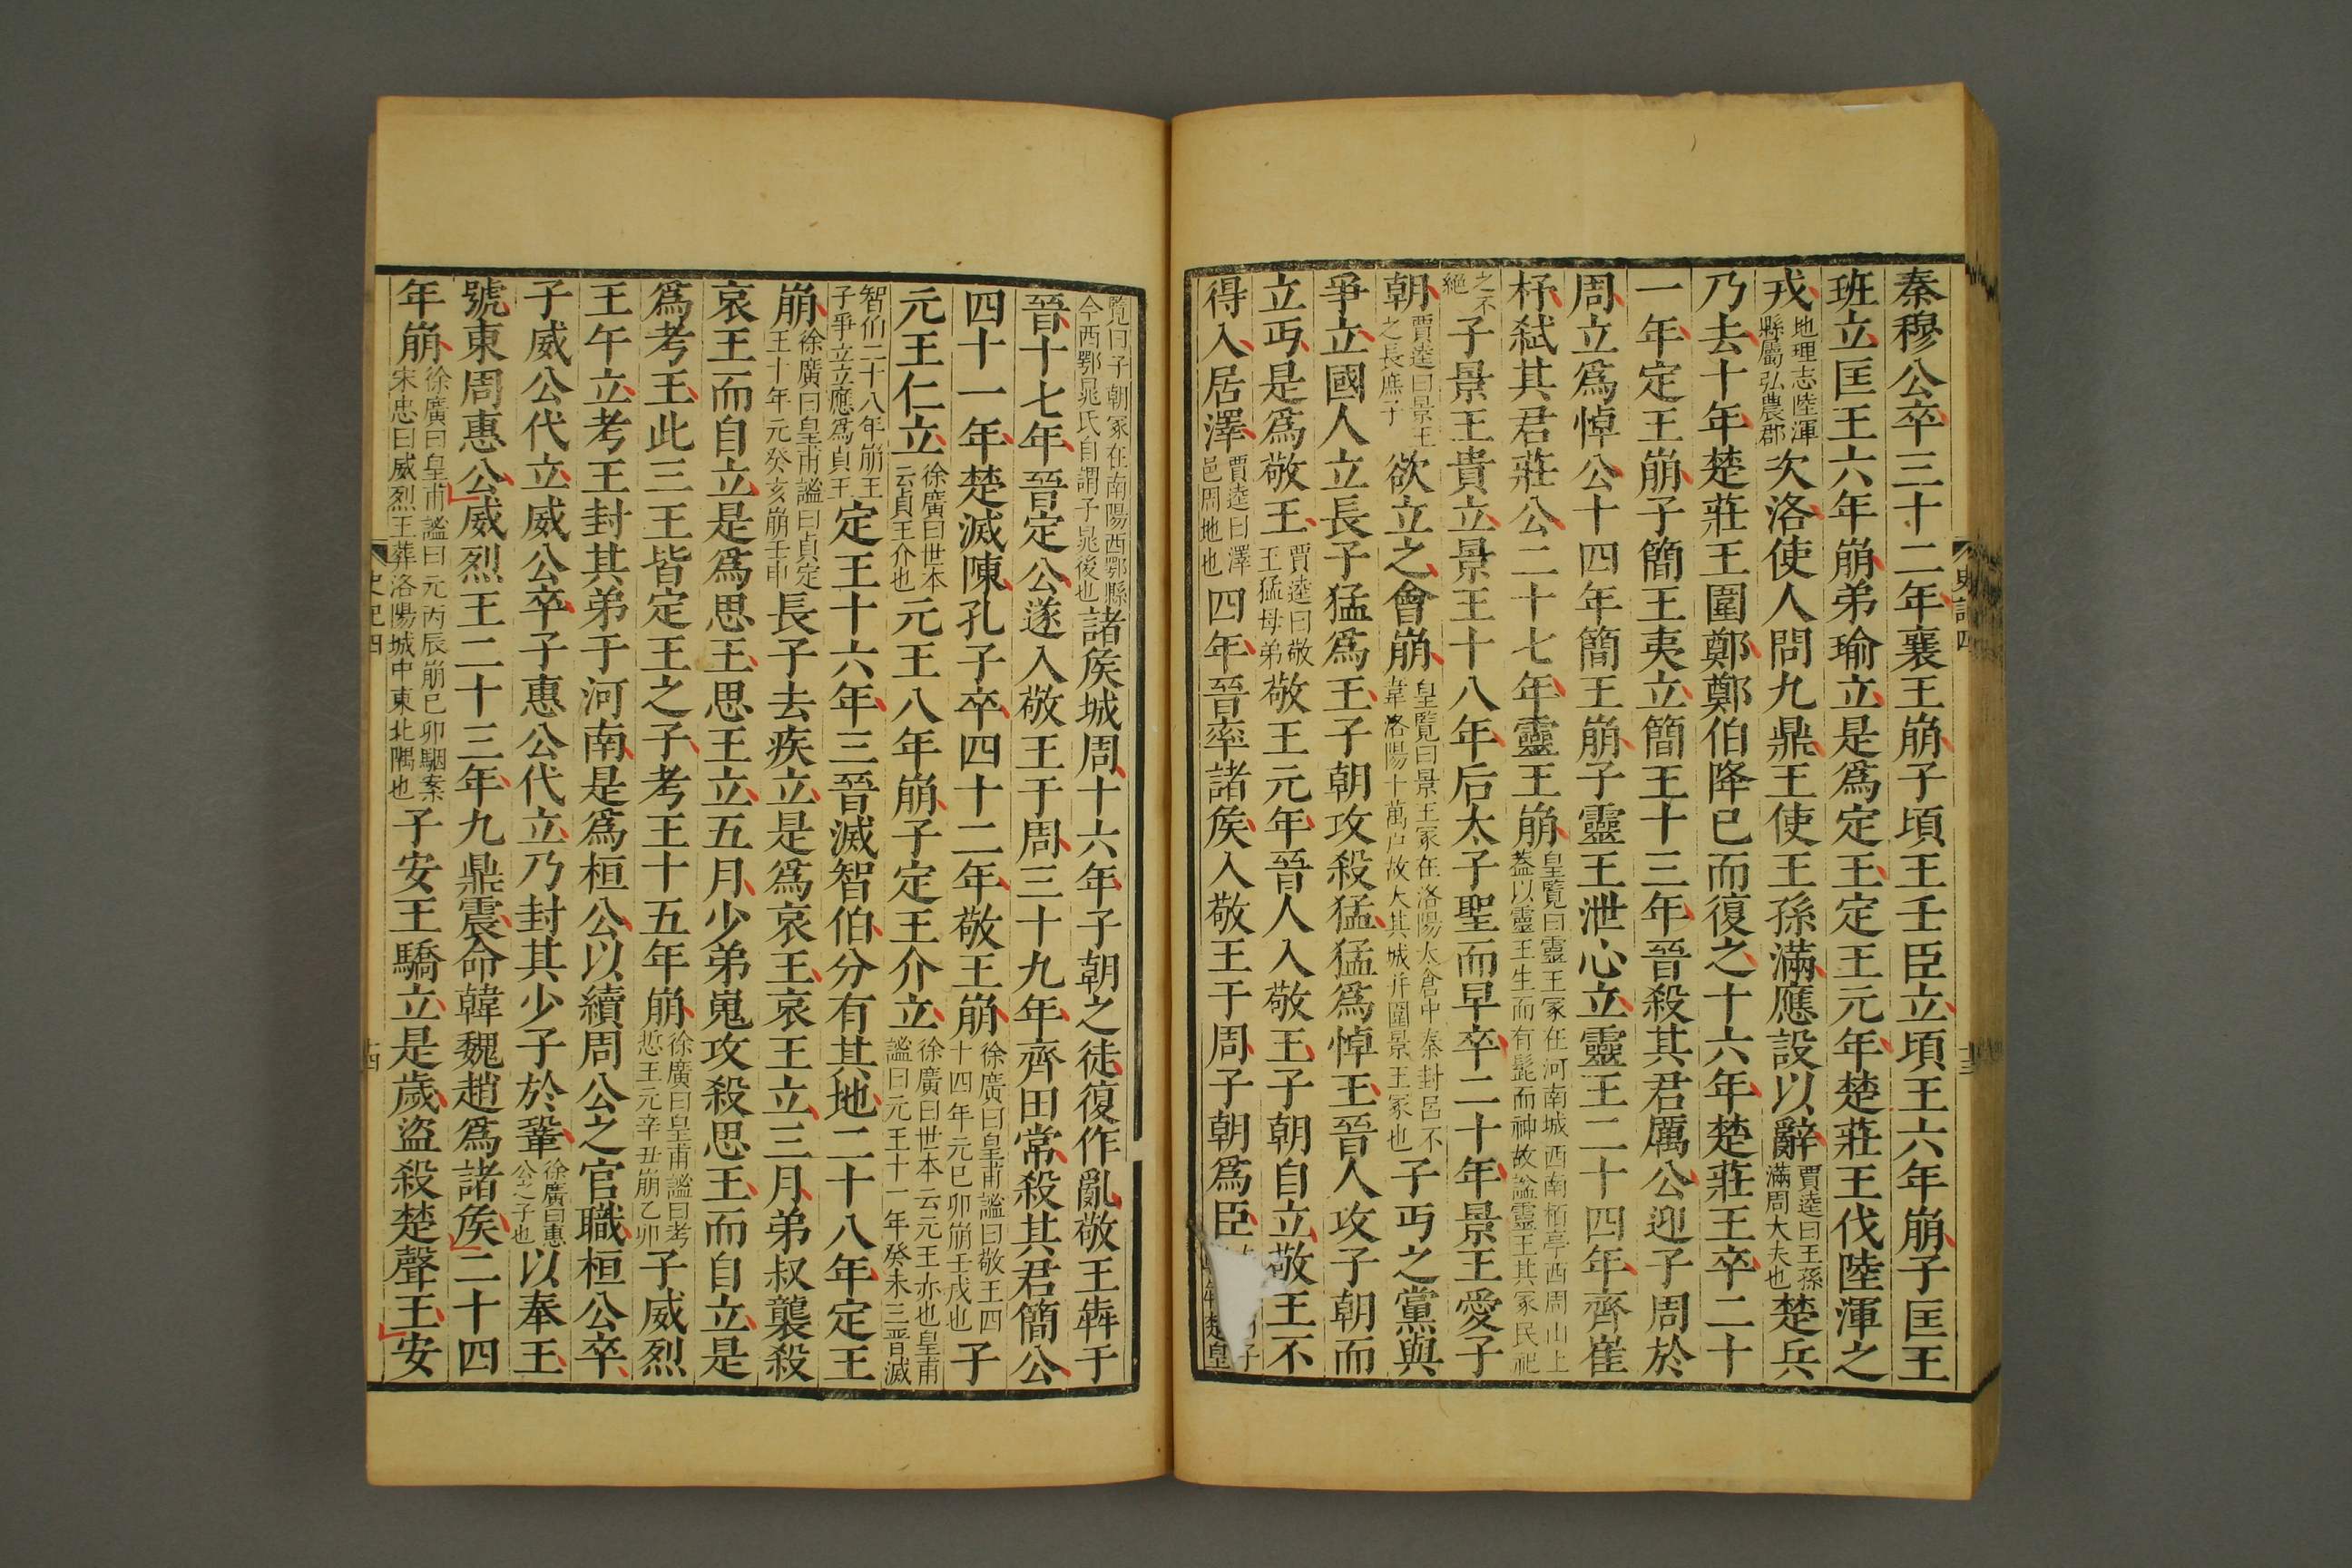 秦穆公卒三十二年襄王崩子頃王壬臣立頃王六年崩子匡王
班立匡王六年崩弟瑜立是爲定王定王元年楚莊王伐陸渾之
戎地理志陸渾縣屬弘農郡次洛使人問九鼎王使王孫滿應設以辭賈逵曰王孫滿周大夫也楚兵
乃去十年楚莊王圍鄭鄭伯降已而復之十六年楚莊王卒二十
一年定王崩子簡王夷立簡王十三年晉殺其君厲公迎子周於
周立爲悼公十四年簡王崩子靈王泄心立靈王二十四年齊崔
杼弑其君莊公二十七年靈王崩皇覽曰靈王冢在河南城西南栢亭西周山上蓋以靈王生而有髭而神故謚靈王其冢民祀
之不絕子景王貴立景王十八年后太子聖而早卒二十年景王愛子
朝賈逵曰景王之長庶子欲立之會崩皇覽曰景王冢在洛陽太倉中秦封呂不韋洛陽十萬户故大其城并圍景王冢也子丐之黨與
爭立國人立長子猛爲王子朝攻殺猛猛爲悼王晉人攻子朝而
立丐是爲敬王賈逵曰敬王猛母弟敬王元年晉人入敬王子朝自立敬王不
得入居澤賈逵曰澤邑周地也四年晉率諸矦入敬王于周子朝爲臣
史記四
十三
覽曰子朝冢在南陽西鄂縣今西鄂晁氏自謂子晁後也諸矦城周十六年子朝之徒復作亂敬王犇于
晉十七年晉定公遂入敬王于周三十九年齊田常殺其君簡公
四十一年楚滅陳孔子卒四十二年敬王崩徐廣曰皇甫謐曰敬王四十四年元巳卯崩壬戌也子
元王仁立徐廣曰世本云貞王介也元王八年崩子定王介立徐廣曰世本云元王赤也皇甫謐曰元王十一年癸未三晉滅
智伯二十八年崩王子爭立立應爲貞王定王十六年三晉滅智伯分有其地二十八年定王
崩徐廣曰皇甫謐曰貞定王十年元癸亥崩壬申長子去疾立是爲哀王哀王立三月弟叔襲殺
哀王而自立是爲思王思王立五月少弟嵬攻殺思王而自立是
爲考王此三王皆定王之子考王十五年崩徐廣曰皇甫謐曰考悊王元辛丑崩乙卯子威烈
王午立考王封其弟于河南是爲桓公以續周公之官職桓公卒
子威公代立威公卒子惠公代立乃封其少子於鞏徐廣曰惠公之子也以奉王
號東周惠公威烈王二十三年九鼎震命韓魏趙爲諸矦二十四
年崩徐廣曰皇甫謐曰元丙辰崩巳卯駰案宋忠曰威烈王葬洛陽城中東北隅也子安王驕立是歲盜殺楚聲王安
史記四
十四